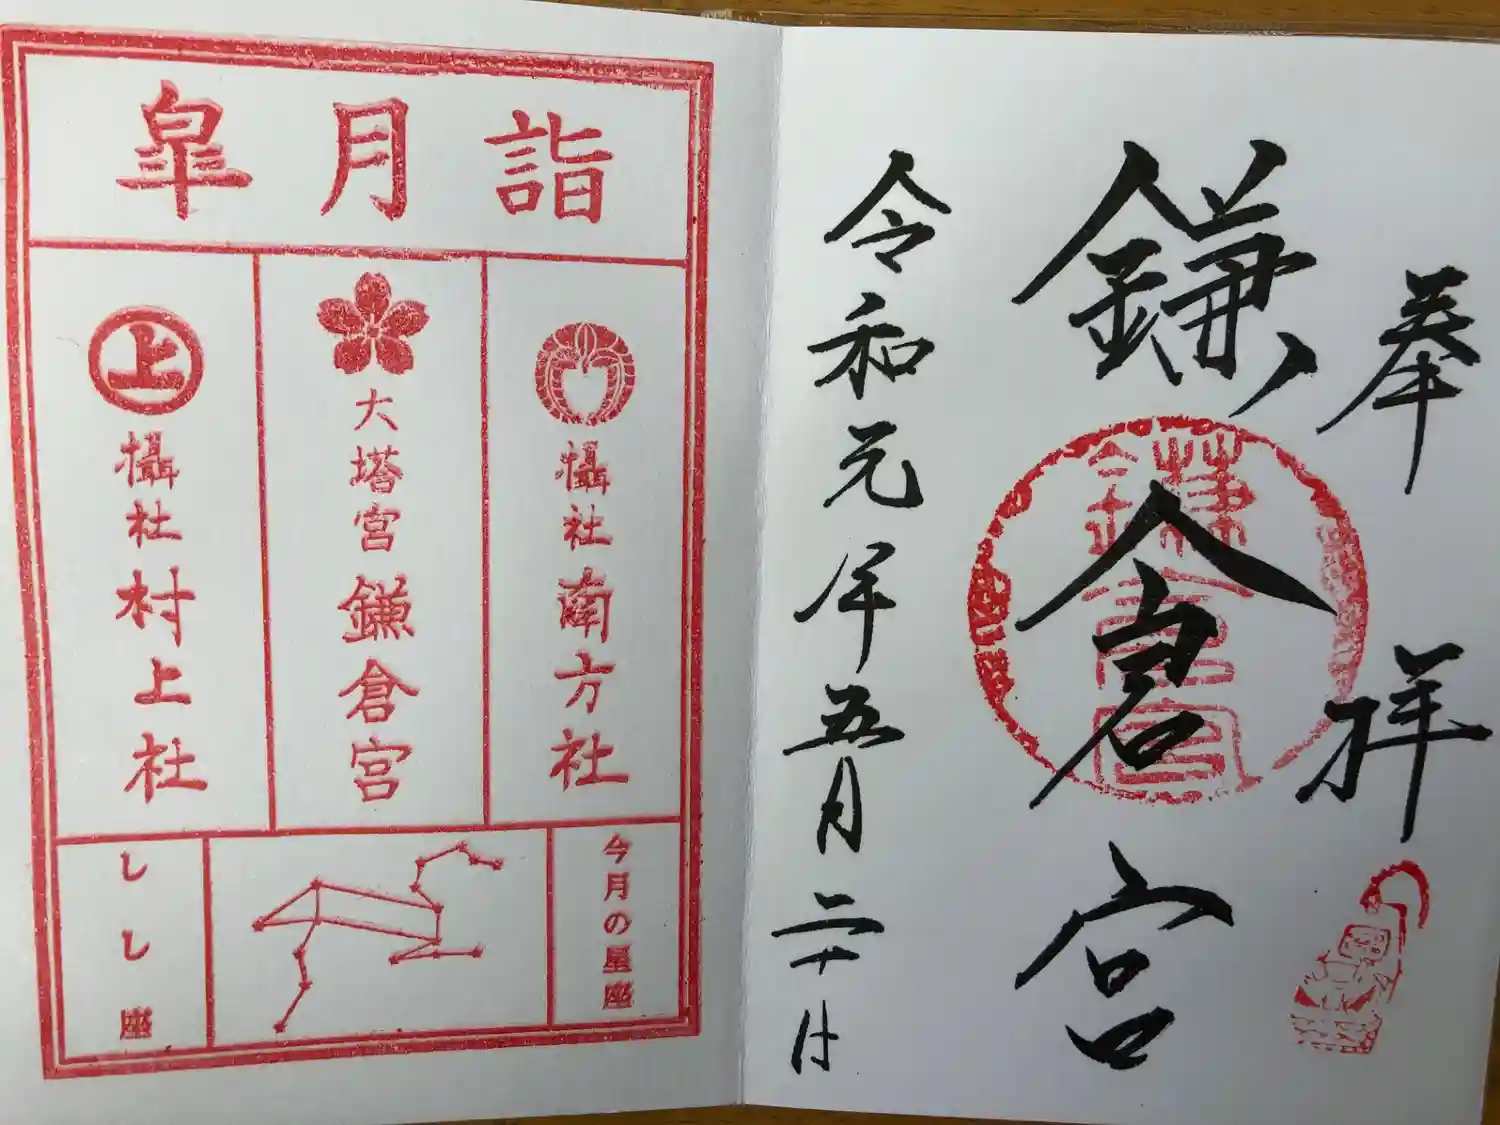 奉拝
鎌倉宮
鎌倉宮
令和元年五月二十八日
皐月詣
攝社南方社
大塔宮鎌倉宮
上
攝社村上社
今月の星座
しし座